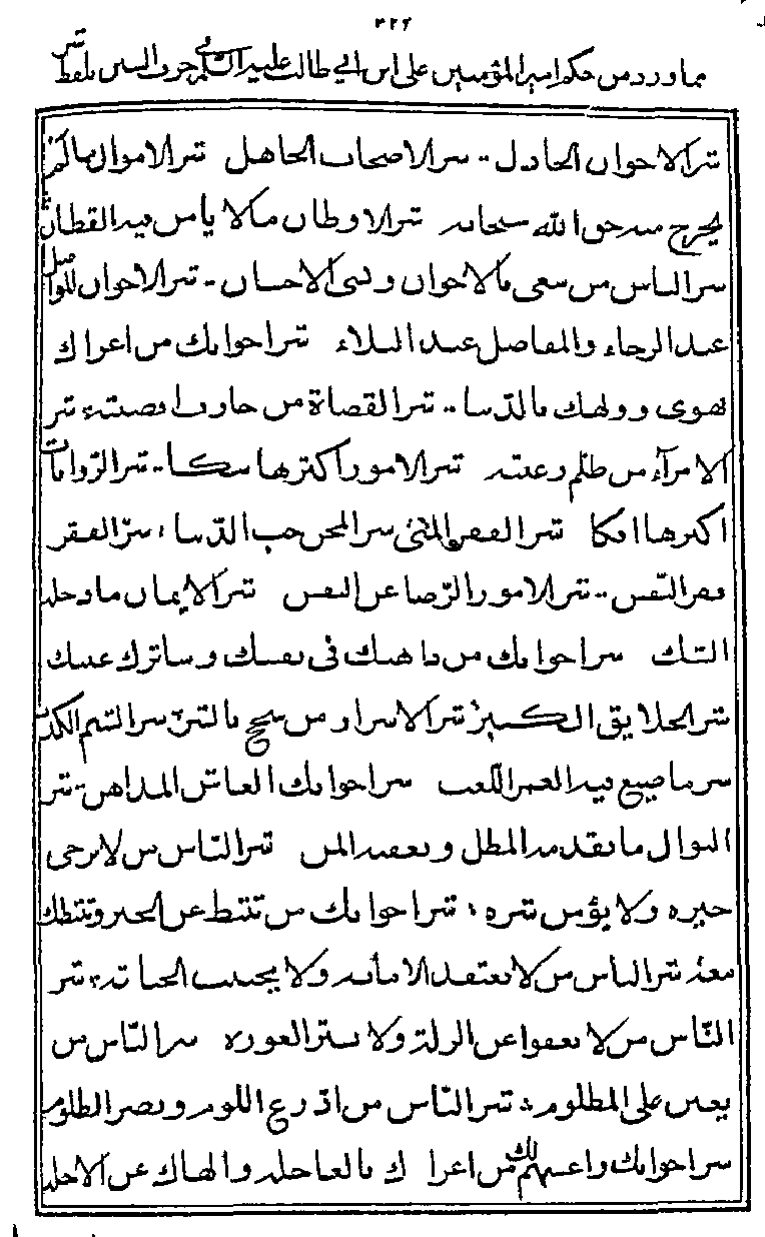 ٣٢٦
مما ورد من حكم امير المؤمنين على ابن ابي طالب عليه السلام حرف الشين بلفظ شر
شر الاخوان الخاذل شر الاصحاب الجاهل شر الاموال ما لم
يخرج منه حق الله سبحانه شر الاوطان ما لا يأمن فيه القطان
شر الناس من سعى بالاخوان ونسى الاحسان شر الاخوان المواصل
عند الرخاء والمفاصل عند البلاء شر اخوانك من اغراك
بهوى وولهك بالدنيا شر القضاة من جارت اقضيته شر
الامرآء من ظلم رعيته شر الامور اكثرها شكا شر الروايات
اكثرها افكا شر الفقر المنى شر المحن حب الدنيا شر الفقر
فقر النفس شر الامور الرضا عن النفس شر الايمان ما دخله
الشك شر اخوانك من داهنك فى نفسك وساترك عيبك
شر الخلايق الكبر شر الاشرار من يبجح بالشر شر الشيم الكذب
شر ما ضيع فيه العمر اللعب شر اخوانك الغاش المداهن شر
النوال ما تقدمه المطل وتعقبه المن شر الناس من لا يرجى
خيره ولا يؤمن شره شر اخوانك من تثبط عن الخير وتثبطك
معه شر الناس من لا يعتقد الامانه ولا يجتنب الخيانه شر
النّاس من لا يعفوا عن الزلة ولا يستر العورة شر النّاس من
يعين على المظلوم شر النّاس من ادّرع اللوم ونصر الظلوم
شر اخوانك واغشهم لك من اغراك بالعاجله والهاك عن الاجله